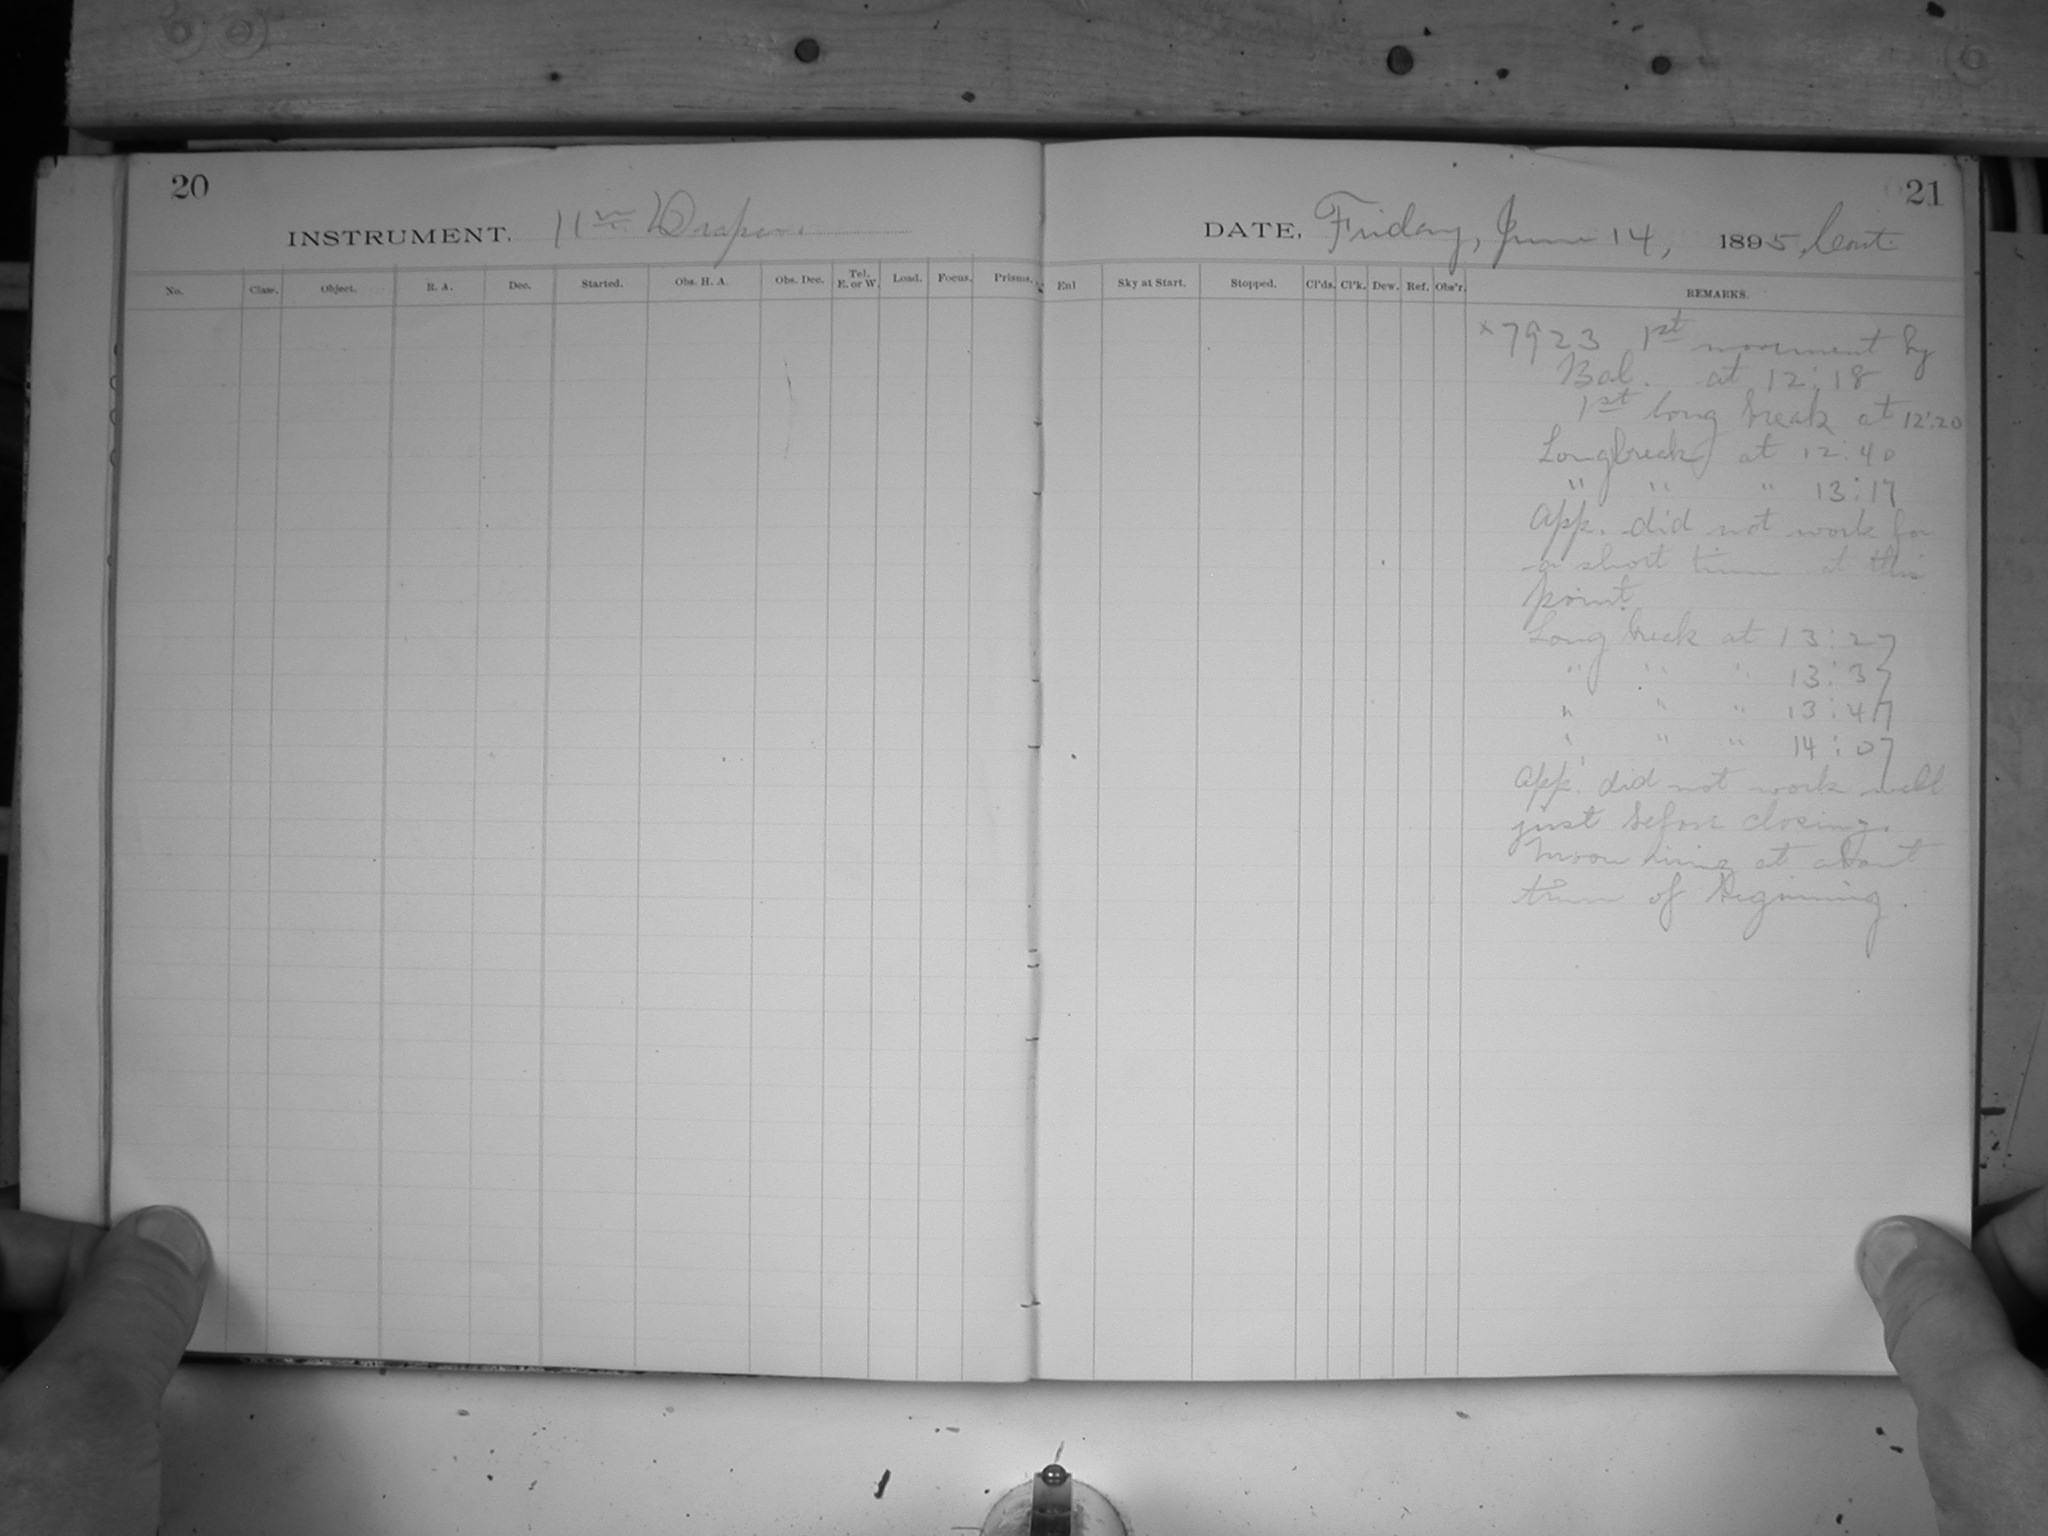 20
INSTRUMENT, 11 in Draper.
No. Class. Object. R. A. Dec. Started. Obs. H. A. Obs. Dec. Tel. E. or W. Load. Focus. Prisms.
21
DATE, Friday, June 14, 1895, Cont.
Exl Sky at Start. Stopped. Cl'ds. Cl'k. Dew. Ref. Obs'r. REMARKS.
x 7923 1st movement by
Bal. at 12:18
1st long break at 12:20
Long break at 12:40
" " " 13:17
App. did not work for
a short time at this
point.
Long break at 13:27
" " " 13:37
" " " 13:47
" " " 14:07
App. did not work well
just before closing.
Moon rising at about
time of Beginning.